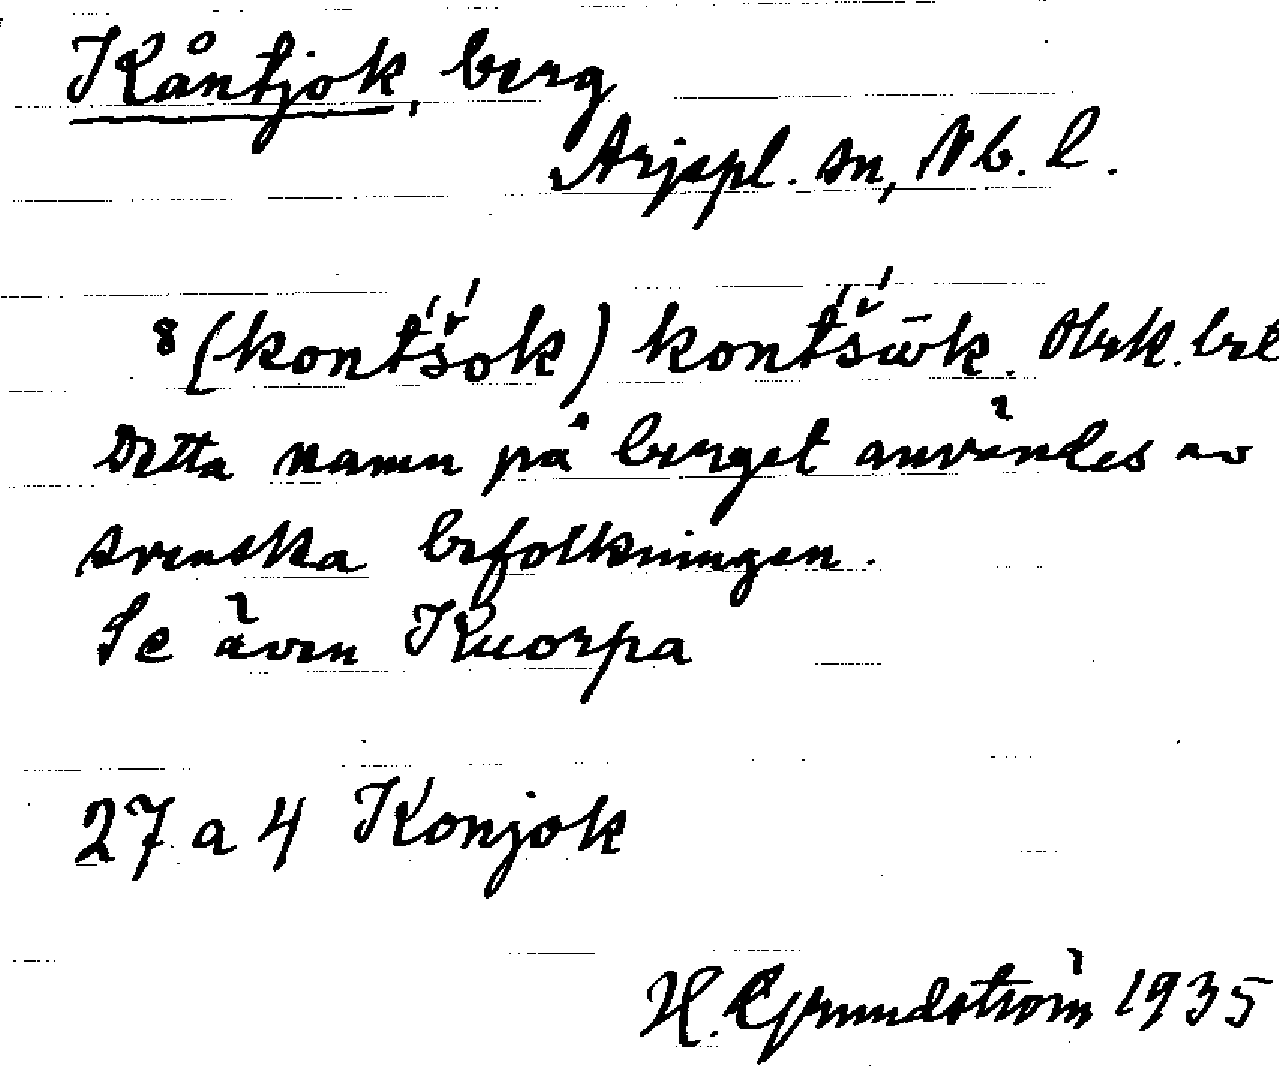 Kåntjok, berg
Arjepl. sn, Nb. l.
8 (kont́š́ok) kont́š́ōk. Obek. bet
Detta namn på berget användes av
svenska befolkningen.
Se även Kuorpa
27 a 4 Konjok
H. Grundström 1935